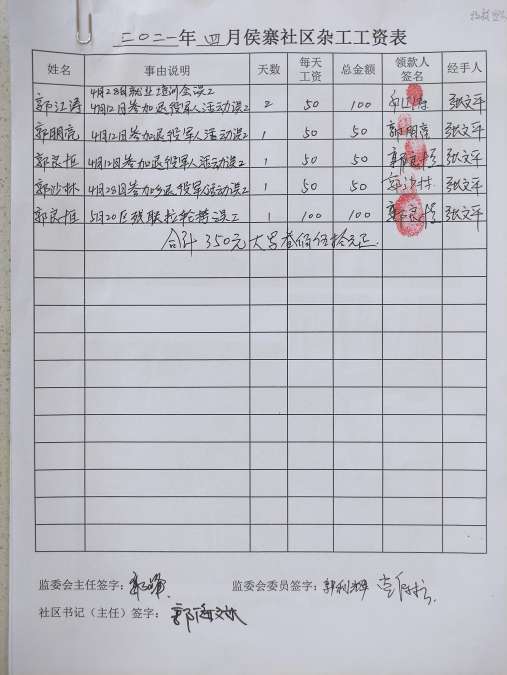 二〇二一年 四月侯寨社区杂工工资表
姓名 事由说明 天数 每天工资 总金额 领款人签名 经手人
4月28日就业培训会误工
郭江涛 4月12日参加退役军人活动误工 2 50 100 郭江涛 张文平
郭朋亮 4月12日参加退役军人活动误工 1 50 50 郭朋亮 张文平
郭良恒 4月12日参加退役军人活动误工 1 50 50 郭良恒 张文平
郭沙林 4月28日参加退役军人活动误工 1 50 50 郭沙林 张文平
郭良恒 5月20日 误工 1 100 100 郭良恒 张文平
合计350元 大写叁佰伍拾元正
监委会主任签字: 监委会委员签字:郭利
社区书记(主任)签字:郭海